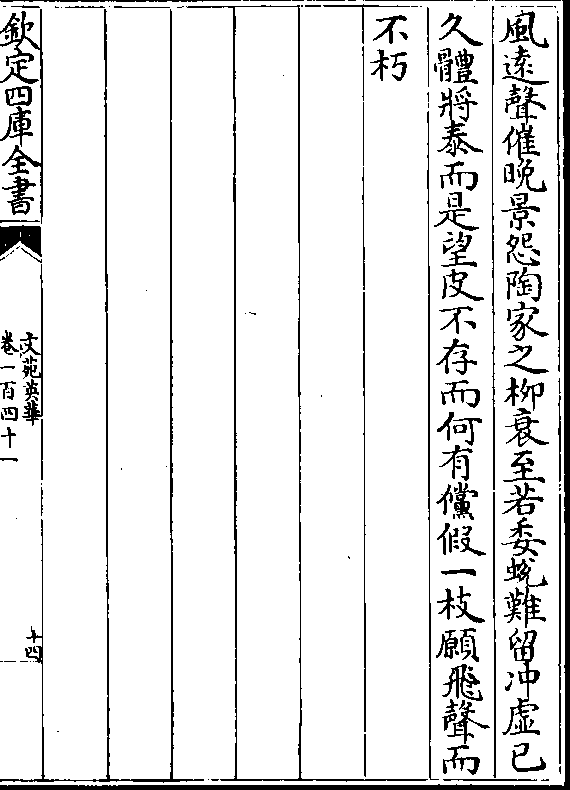 風遠聲催晚景怨陶家之柳衰至若委蛻難留冲虛已
久體將泰而是望皮不存而何有儻假一枝願飛聲而
不朽
欽定四庫全書
文苑英華
卷一百四十一
十四